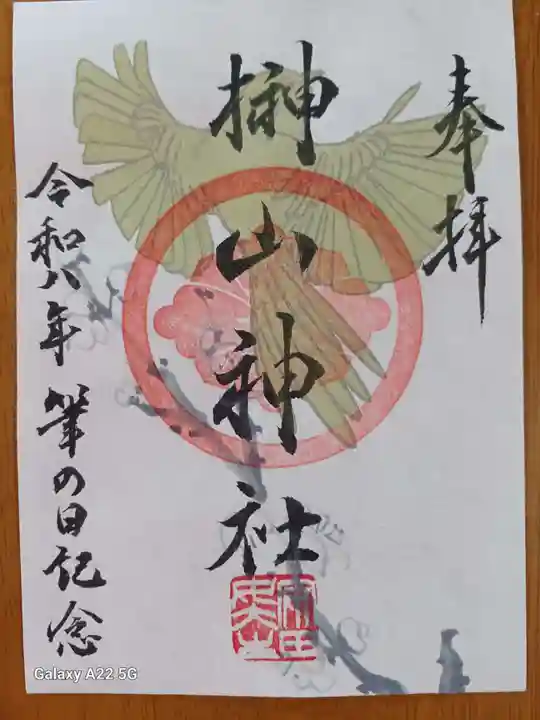 奉拝
榊山神社
令和八年 筆の日記念
Galaxy A22 5G